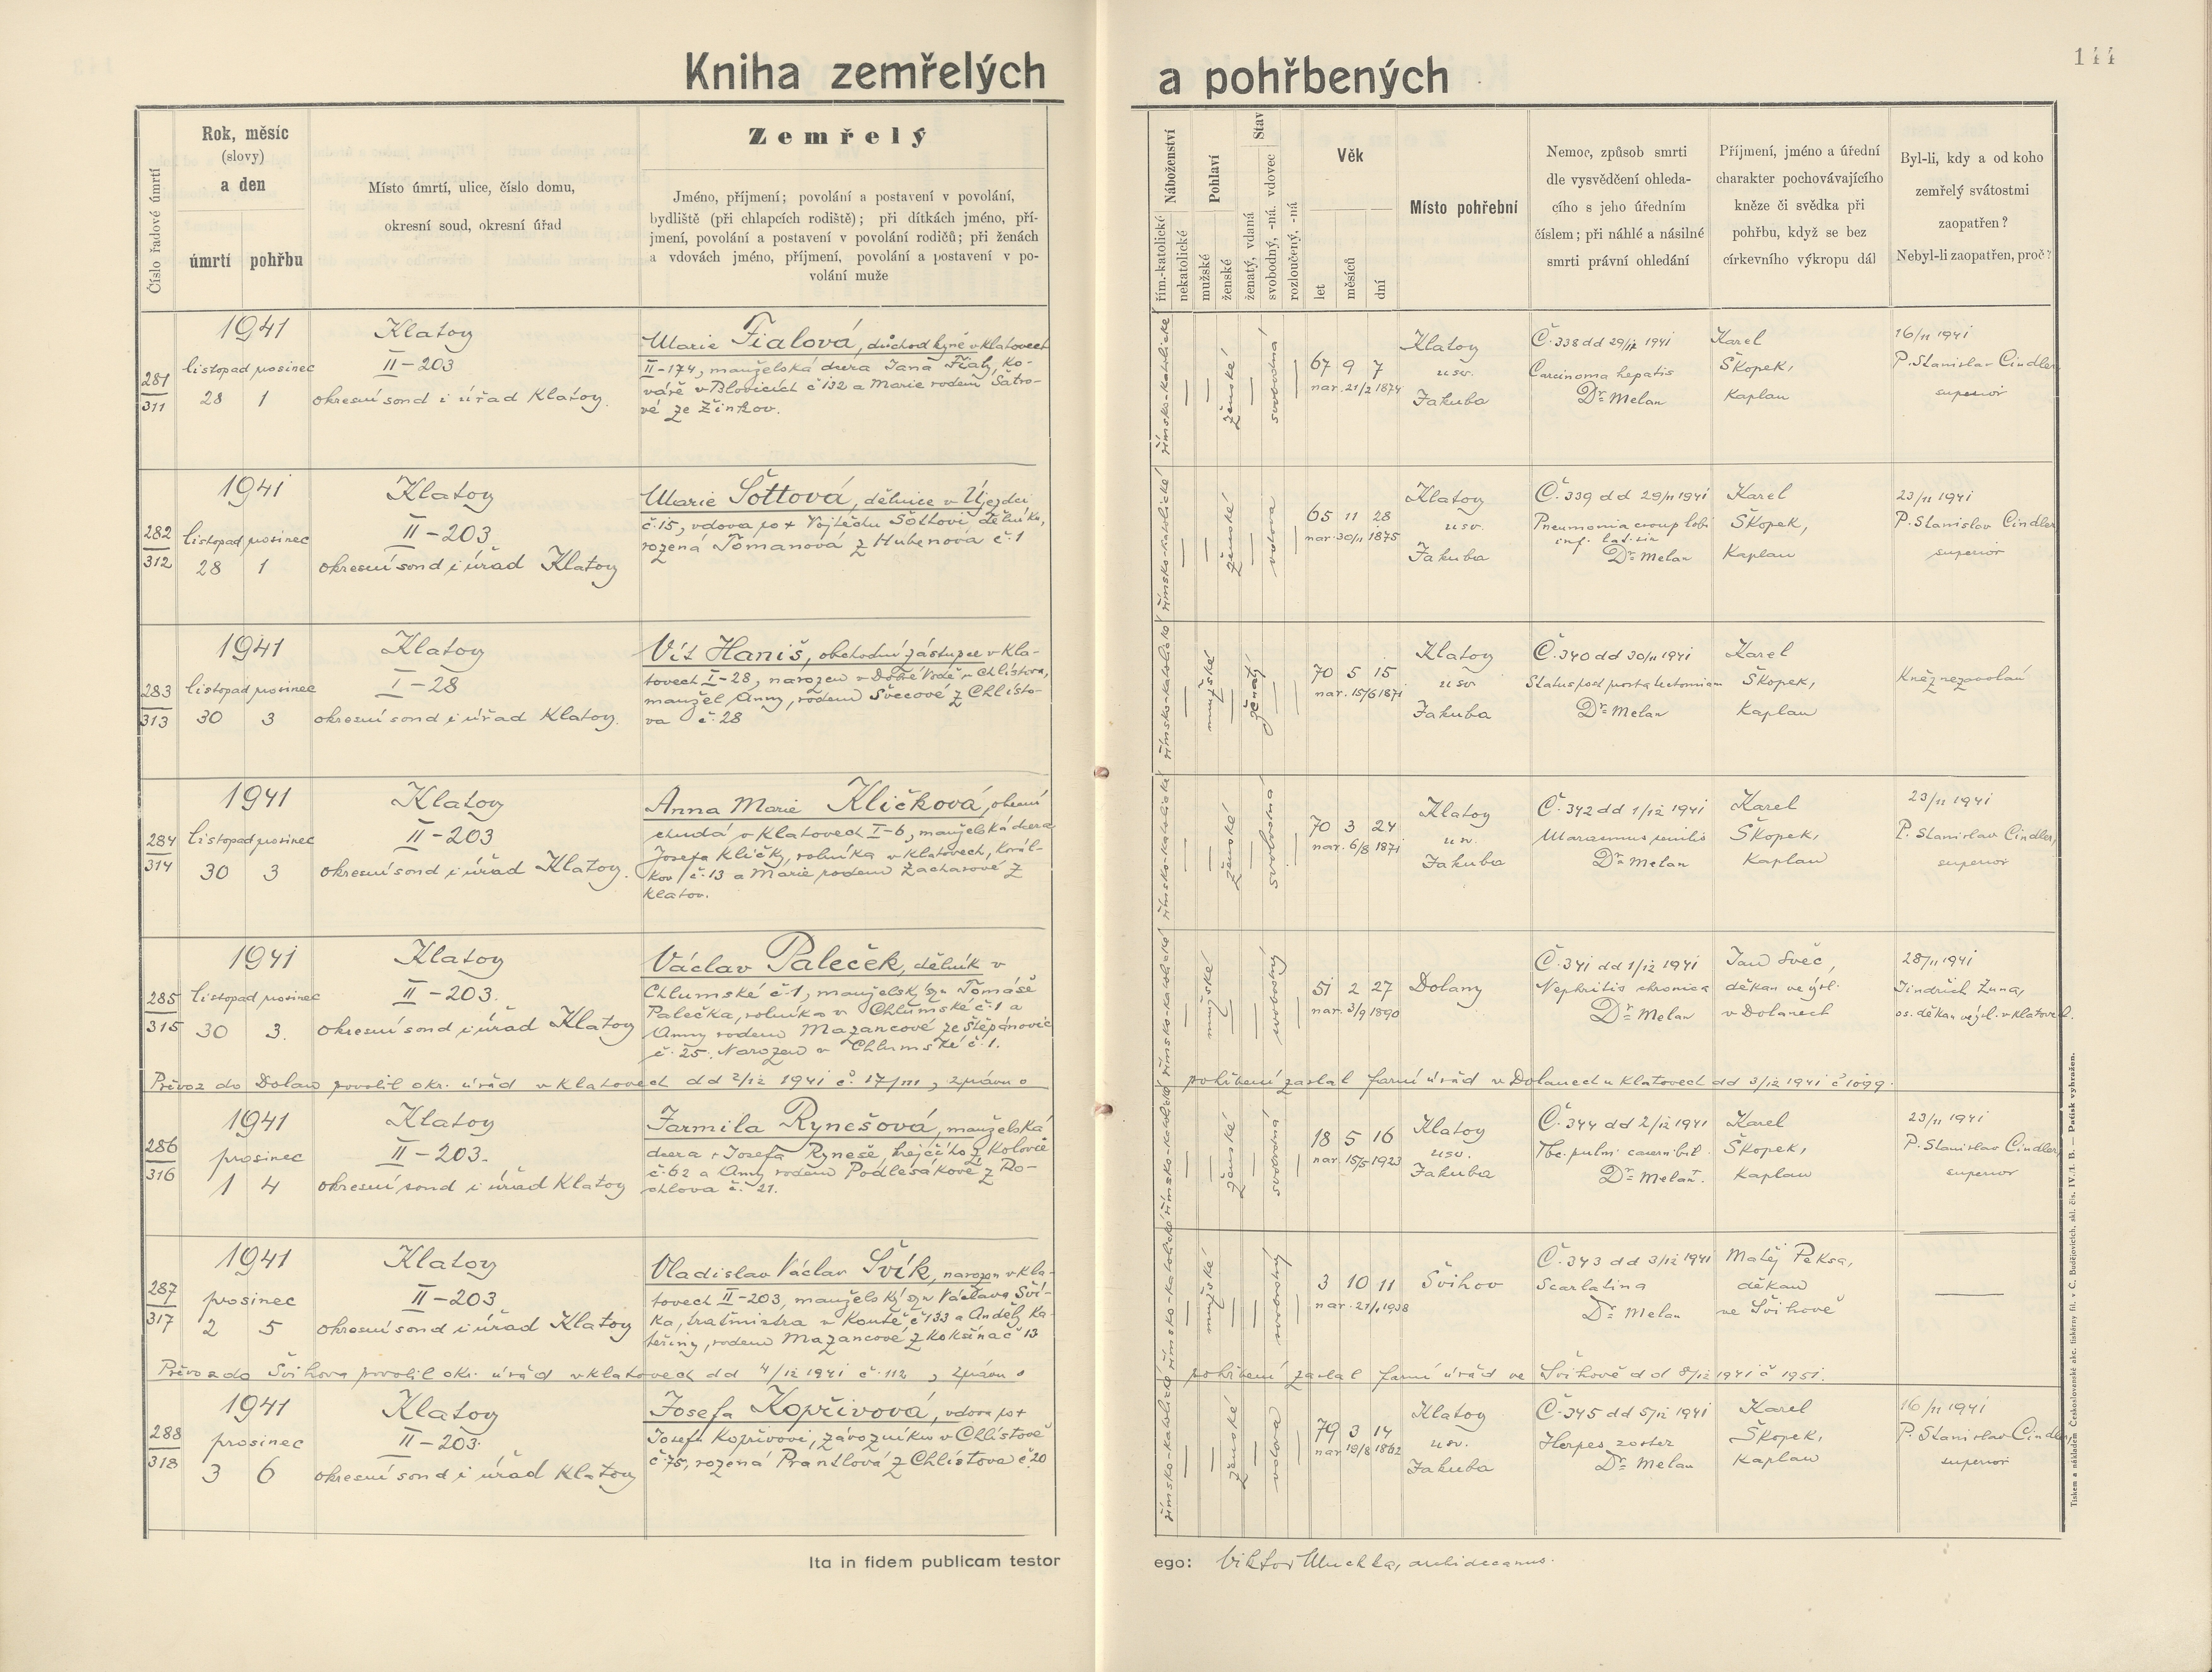 Kniha zemřelých a pohřbených
144
Číslo řadové úmrtí
Rok, měsíc
(slovy)
a den
úmrtí
pohřbu
Místo úmrtí, ulice, číslo domu,
okresní soud, okresní úřad
Zemřelý
Jméno, příjmení; povolání a postavení v povolání,
bydliště (při chlapcích rodiště); při dítkách jméno, pří-
jmení, povolání a postavení v povolání rodičů; při ženách
a vdovách jméno, příjmení, povolání a postavení v po-
volání muže
Náboženství
řím.-katolické
nekatolické
Pohlaví
mužské
ženské
Stav
ženatý, vdaná
svobodný, -ná. vdovec
rozloučený, -ná
Věk
let
měsíců
dní
Místo pohřební
Nemoc, způsob smrti
dle vysvědčení ohleda-
cího s jeho úředním
číslem; při náhlé a násilné
smrti právní ohledání
Příjmení, jméno a úřední
charakter pochovávajícího
kněze či svědka při
pohřbu, když se bez
církevního výkropu dál
Byl-li, kdy a od koho
zemřelý svátostmi
zaopatřen?
Nebyl-li zaopatřen, proč?
281
311
1941
listopad prosinec
28 1
Klatovy
II-203
okresní soud i úřad Klatovy.
Marie Fialová, důchodkyně v Klatovech
II-174, manželská dcera Jana Fialy, ko-
váře v Blovicích č 132 a Marie rodem Šatro-
vé ze Žinkov.
římsko-katolické
ženské
svobodná
67 9 7
nar. 21/2 1874
Klatovy
u sv.
Jakuba
Č. 338 dd 29/11 1941
Carcinoma hepatis
Dr. Melan
Karel
Škopek,
Kaplan
16/11 1941
P. Stanislav Cindler,
superior
282
312
1941
listopad prosinec
28 1
Klatovy
II-203
okresní soud i úřad Klatovy
Marie Šottová, dělnice v Újezdci
č. 15, vdova po + Vojtěchu Šottovi, dělníku,
rozená Tomanová z Hubenova č. 1
římsko-katolické
ženské
vdova
65 11 28
nar. 30/11 1875
Klatovy
u sv.
Jakuba
Č. 339 dd 29/11 1941
Pneumonia croup lobi
inf. lat. sin
Dr. Melan
Karel
Škopek,
Kaplan
23/11 1941
P. Stanislav Cindler
superior
283
313
1941
listopad prosinec
30 3
Klatovy
I-28
okresní soud i úřad Klatovy.
Vít Haniš, obchodní zástupce v Kla-
tovech I-28, narozen v Dobré Vodě u Chlistova,
manžel Anny, rodem Švecové z Chlisto-
va č. 28
římsko-katolické
mužské
ženatý
70 5 15
nar. 15/6 1871
Klatovy
u sv
Jakuba
Č. 340 dd 30/11 1941
Status post prostatectomiam
Dr. Melan
Karel
Škopek,
Kaplan
Kněz nezavolán
284
314
1941
listopad prosinec
30 3
Klatovy
II-203
okresní soud i úřad Klatovy.
Anna Marie Kličková, obecní
chudá v Klatovech I-6, manželská dcera
Josefa Kličky, rolníka v Klatovech, Korál-
kov / č. 13 a Marie rodem Zacharové z
Klatov.
římsko-katolické
ženské
svobodná
70 3 24
nar. 6/8 1871
Klatovy
u sv.
Jakuba
Č. 342 dd 1/12 1941
Marasmus senilis
Dr. Melan
Karel
Škopek,
Kaplan
23/11 1941
P. Stanislav Cindler,
superior
285
315
1941
listopad prosinec
30 3.
Klatovy
II-203.
okresní soud i úřad Klatovy
Václav Paleček, dělník v
Chlumské č. 1, manželský syn Tomáše
Palečka, rolníka v Chlumské č. 1 a
Anny rodem Mazancové ze Štěpánovic
č. 25. Narozen v Chlumské č. 1.
římsko-katolické
mužské
svobodný
51 2 27
nar. 3/9 1890
Dolany
Č. 341 dd 1/12 1941
Nephritis chronica
Dr. Melan
Jan Švéc,
děkan ve výsl.
v Dolanech
28/11 1941
Jindřich Žuna,
os. děkan ve výsl. v Klatovech.
Převoz do Dolan povolil okr. úřad v Klatovech dd 2/12 1941 č. 17/III, zprávu o pohřbení zaslal farní úřad v Dolanech u Klatovech dd 3/12 1941 č 1099.
286
316
1941
prosinec
1 4
Klatovy
II-203.
okresní soud i úřad Klatovy
Jarmila Rynešová, manželská
dcera + Josefa Ryneše, krejčího z Kolovče
č. 62 a Anny rodem Podlesákové z Po-
ohlova č. 21.
římsko-katolické
ženské
svobodná
18 5 16
nar. 15/5 1923
Klatovy
u sv.
Jakuba
Č. 344 dd 2/12 1941
Tbc. pulm cavern bil.
Dr. Melan.
Karel
Škopek,
Kaplan
23/11 1941
P. Stanislav Cindler,
superior
287
317
1941
prosinec
2 5
Klatovy
II-203
okresní soud i úřad Klatovy
Vladislav Václav Švík, narozen v Kla-
tovech II-203, manželský syn Václava Šví-
ka, tratmistra v Koutě, č 133 a Anděly Ka-
teřiny, rodem Mazancové z Kokšína č 13
římsko-katolické
mužské
svobodný
3 10 11
nar. 21/1 1938
Švihov
Č. 343 dd 3/12 1941
Scarlatina
Dr. Melan
Matěj Peksa,
děkan
ve Švihově
Převoz do Švihova povolil okr. úřad v Klatovech dd 4/12 1941 č. 112, zprávu o pohřbení zaslal farní úřad ve Švihově dd 8/12 1941 č 1951.
288
318
1941
prosinec
3 6
Klatovy
II-203.
okresní soud i úřad Klatovy
Josefa Kopřivová, vdova po +
Josefu Kopřivovi, závozníku v Chlistově
č. 75, rozená Prantlová z Chlistova č. 20
římsko-katolické
ženské
vdova
79 3 14
nar 19/8 1862
Klatovy
u sv.
Jakuba
Č. 345 dd 5/12 1941
Herpes zoster
Dr. Melan
Karel
Škopek,
Kaplan
16/11 1941
P. Stanislav Cindler,
superior
Ita in fidem publicam testor ego: Viktor Muchka, archidecanus.
Tiskem a nákladem Českoslovanské akc. tiskárny fil. v Č. Budějovicích, skl. čís. IV./1. B. — Patisk vyhražen.